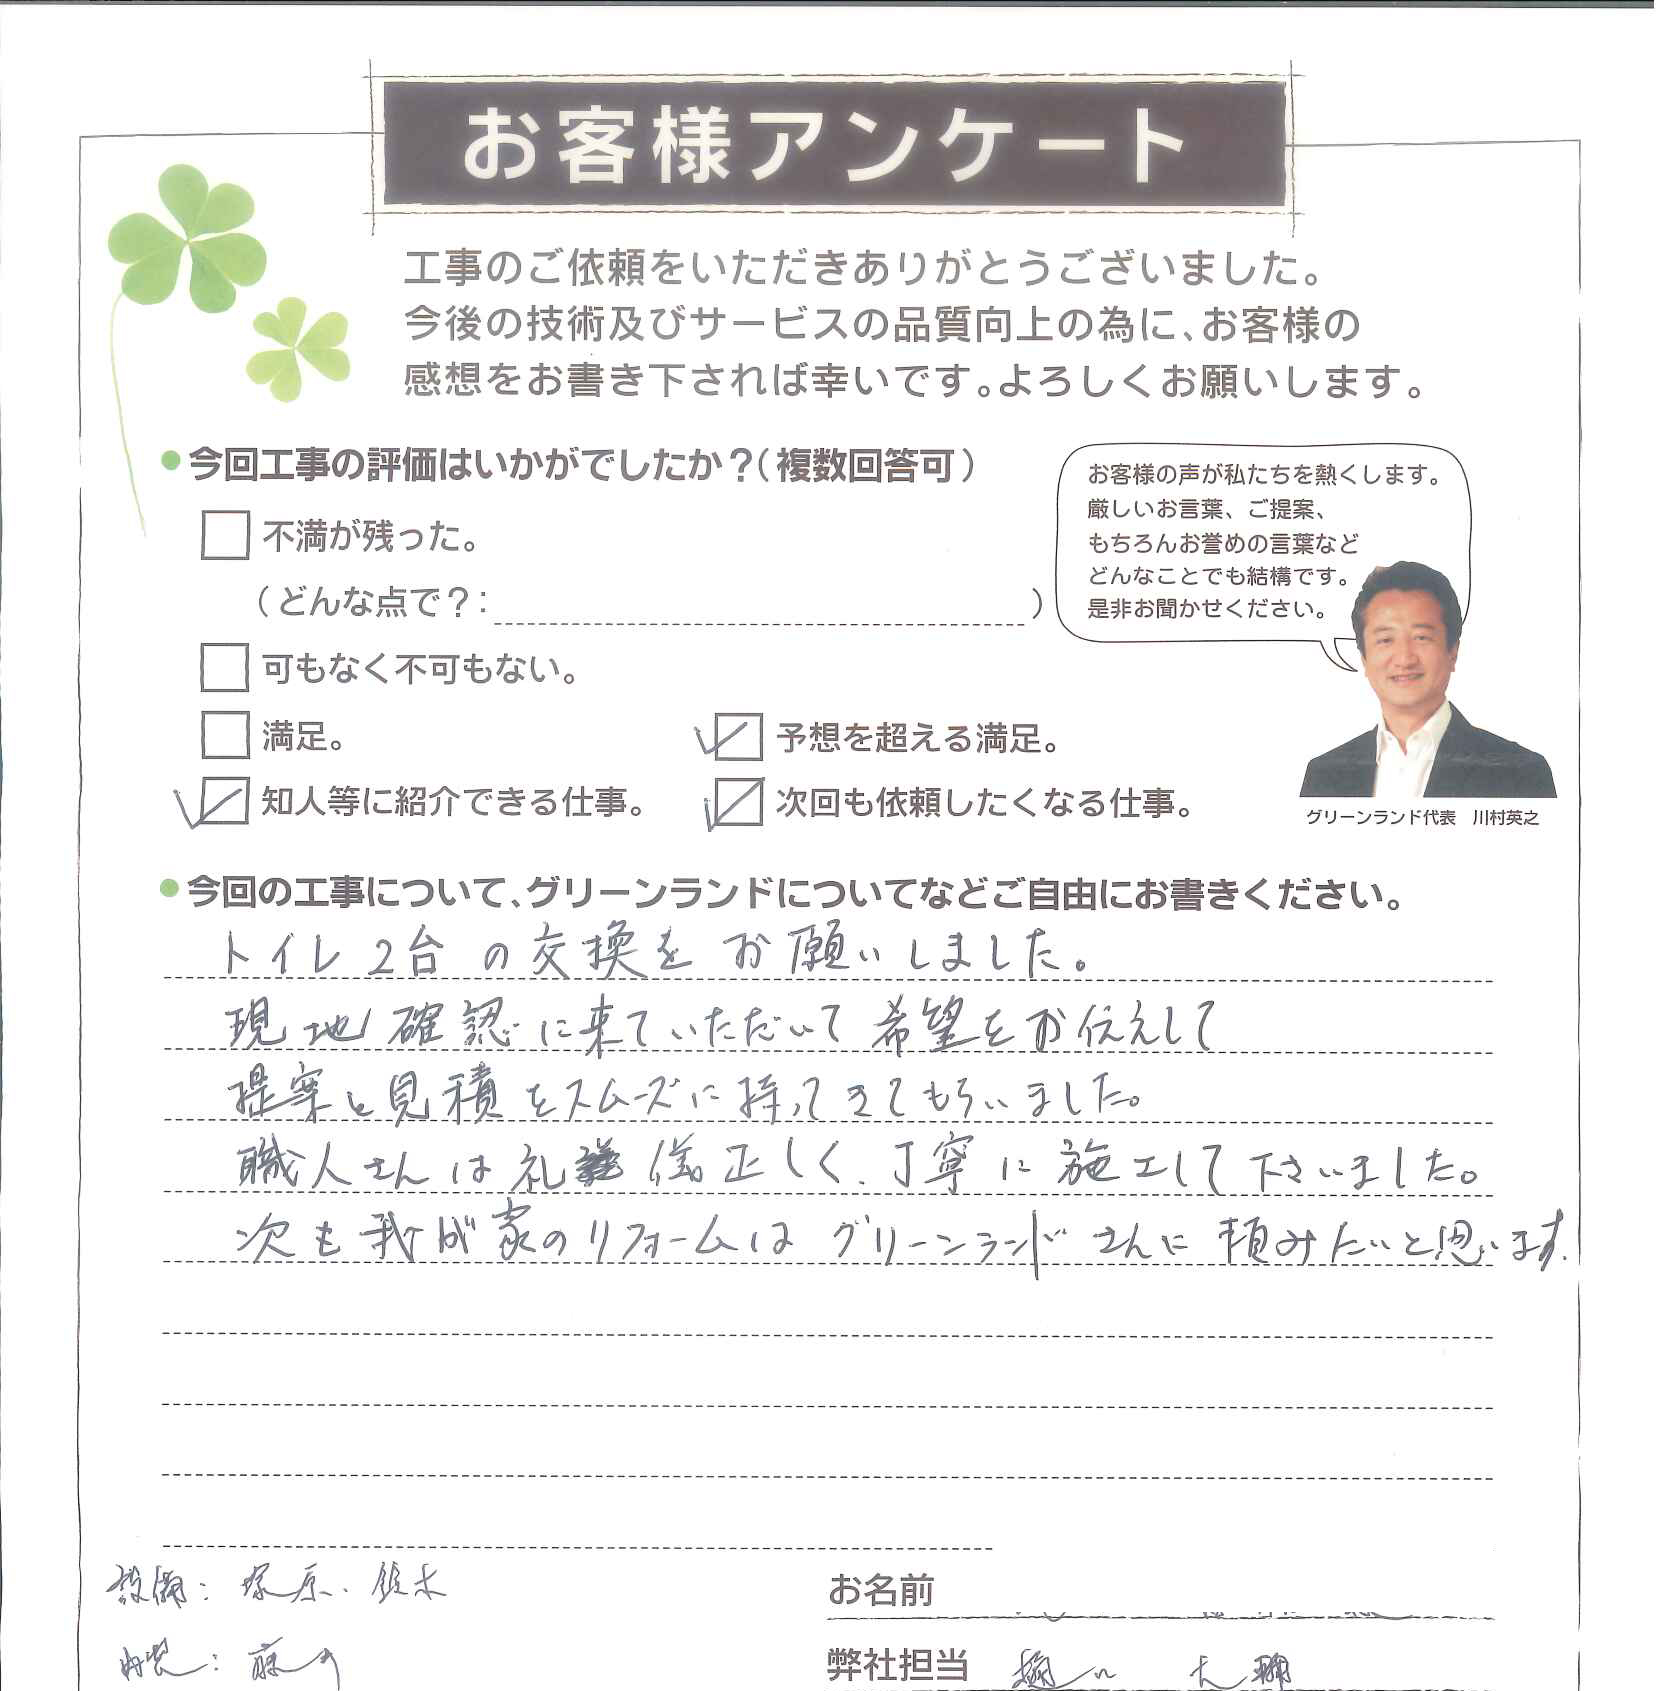 お客様アンケート
工事のご依頼をいただきありがとうございました。
今後の技術及びサービスの品質向上の為に、お客様の
感想をお書き下されば幸いです。よろしくお願いします。
●今回工事の評価はいかがでしたか？（複数回答可）
不満が残った。
（どんな点で？： ）
可もなく不可もない。
満足。
予想を超える満足。
知人等に紹介できる仕事。
次回も依頼したくなる仕事。
お客様の声が私たちを熱くします。
厳しいお言葉、ご提案、
もちろんお誉めの言葉など
どんなことでも結構です。
是非お聞かせください。
グリーンランド代表　川村英之
●今回の工事について、グリーンランドについてなどご自由にお書きください。
トイレ2台の交換をお願いしました。
現地確認に来ていただいて希望をお伝えして
提案と見積をスムーズに持ってきてもらいました。
職人さんは礼儀正しく、丁寧に施工して下さいました。
次も我が家のリフォームはグリーンランドさんに頼みたいと思います。
設備：塚原、鈴木
内装：
お名前
弊社担当